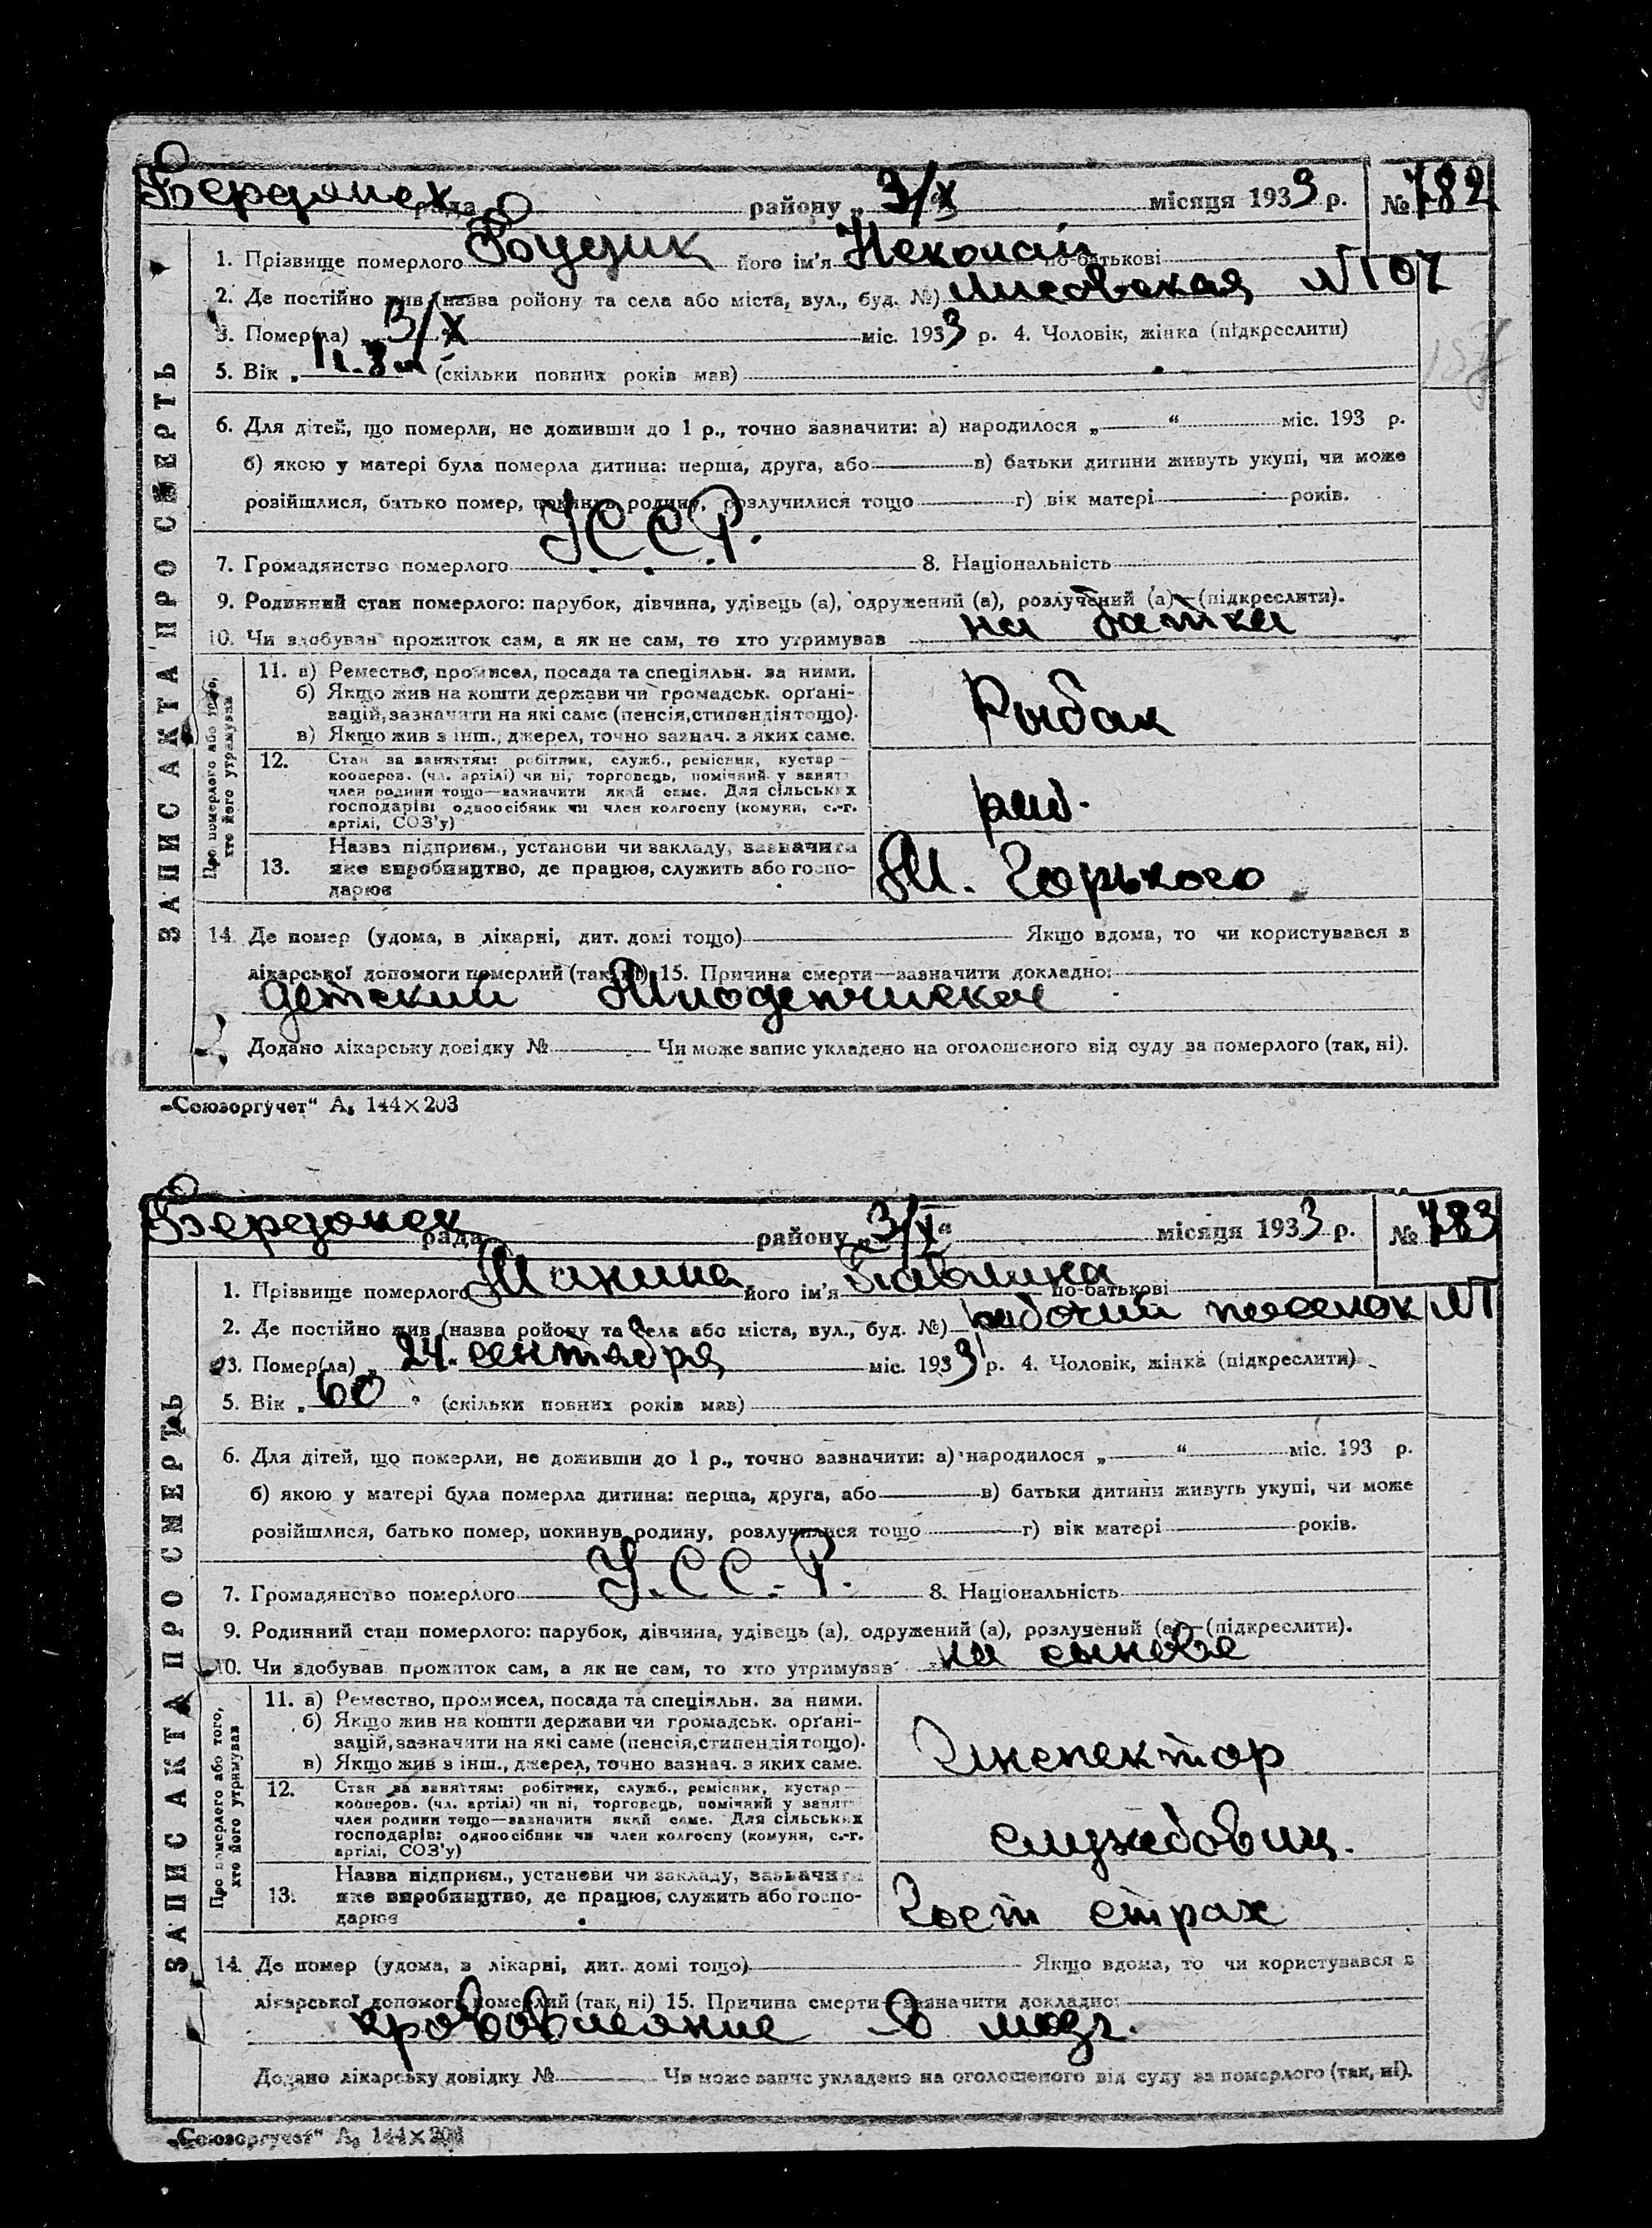 Бердянск рада району „ 3/X “ місяця 1933 р. № 782
ЗАПИС АКТА ПРО СМЕРТЬ
1. Прізвище померлого його ім'я Николай по-батькові
2. Де постійно жив (назва ройону та села або міста, вул., буд. №) Лисовская №107
3. Помер(ла) „ 3/X міс. 1933 р. 4. Чоловік, жінка (підкреслити)
5. Вік „ (скільки повних років мав)
6. Для дітей, що померли, не доживши до 1 р., точно зазначити: а) народилося „ “ міс. 193 р.
б) якою у матері була померла дитина: перша, друга, або в) батьки дитини живуть укупі, чи може
розійшлися, батько помер, покинув родину, розлучилися тощо г) вік матері років.
7. Громадянство померлого У.С.С.Р. 8. Національність
9. Родинний стан померлого: парубок, дівчина, удівець (а), одружений (а), розлучений (а)—(підкреслити).
10. Чи здобував прожиток сам, а як не сам, то хто утримував на батька
Про померлого або того, хто його утримував
11. а) Ремество, промисел, посада та спеціяльн. за ними.
б) Якщо жив на кошти держави чи громадськ. орґані-
зацій, зазначити на які саме (пенсія, стипендія тощо).
в) Якщо жив з інш., джерел, точно зазнач. з яких саме.
Рыбак
12. Стан за заняттям: робітник, служб., ремісник, кустар—
кооперов. (чл. артілі) чи ні, торговець, помічний у занят
член родини тощо—зазначити який саме. Для сільських
господарів: одноосібник чи член колгоспу (комуни, с.-г.
артілі, СОЗ'у)
рыб.
13. Назва підприєм., установи чи закладу, зазначити
яке виробництво, де працює, служить або госпо-
дарює
М. Горького
14. Де помер (удома, в лікарні, дит. домі тощо) Якщо вдома, то чи користувався з
лікарської допомоги померлий (так, ні) 15. Причина смерти—зазначити докладно:
детский Младенческая
Додано лікарську довідку № Чи може запис укладено на оголошеного від суду за померлого (так, ні).
„Союзоргучет“ А₅ 144×203
Бердянск рада району „ 3/X “ місяця 1933 р. № 783
ЗАПИС АКТА ПРО СМЕРТЬ
1. Прізвище померлого Манина його ім'я Павлина по-батькові
2. Де постійно жив (назва ройону та села або міста, вул., буд. №) рабочий поселок №1
3. Помер(ла) „ 24. сентября міс. 1933 р. 4. Чоловік, жінка (підкреслити)
5. Вік „ 60 “ (скільки повних років мав)
6. Для дітей, що померли, не доживши до 1 р., точно зазначити: а) народилося „ “ міс. 193 р.
б) якою у матері була померла дитина: перша, друга, або в) батьки дитини живуть укупі, чи може
розійшлися, батько помер, покинув родину, розлучилися тощо г) вік матері років.
7. Громадянство померлого У.С.С.Р. 8. Національність
9. Родинний стан померлого: парубок, дівчина, удівець (а), одружений (а), розлучений (а)—(підкреслити).
10. Чи здобував прожиток сам, а як не сам, то хто утримував на сынове
Про померлого або того, хто його утримував
11. а) Ремество, промисел, посада та спеціяльн. за ними.
б) Якщо жив на кошти держави чи громадськ. орґані-
зацій, зазначити на які саме (пенсія, стипендія тощо).
в) Якщо жив з інш., джерел, точно зазнач. з яких саме.
Инспектор
12. Стан за заняттям: робітник, служб., ремісник, кустар—
кооперов. (чл. артілі) чи ні, торговець, помічний у занят
член родини тощо—зазначити який саме. Для сільських
господарів: одноосібник чи член колгоспу (комуни, с.-г.
артілі, СОЗ'у)
службовиц.
13. Назва підприєм., установи чи закладу, зазначити
яке виробництво, де працює, служить або госпо-
дарює
Гост страх
14. Де помер (удома, в лікарні, дит. домі тощо) Якщо вдома, то чи користувався з
лікарської допомоги померлий (так, ні) 15. Причина смерти—зазначити докладно:
крововлеяние в мозг.
Додано лікарську довідку № Чи може запис укладено на оголошеного від суду за померлого (так, ні).
„Союзоргучет“ А₅ 144×203